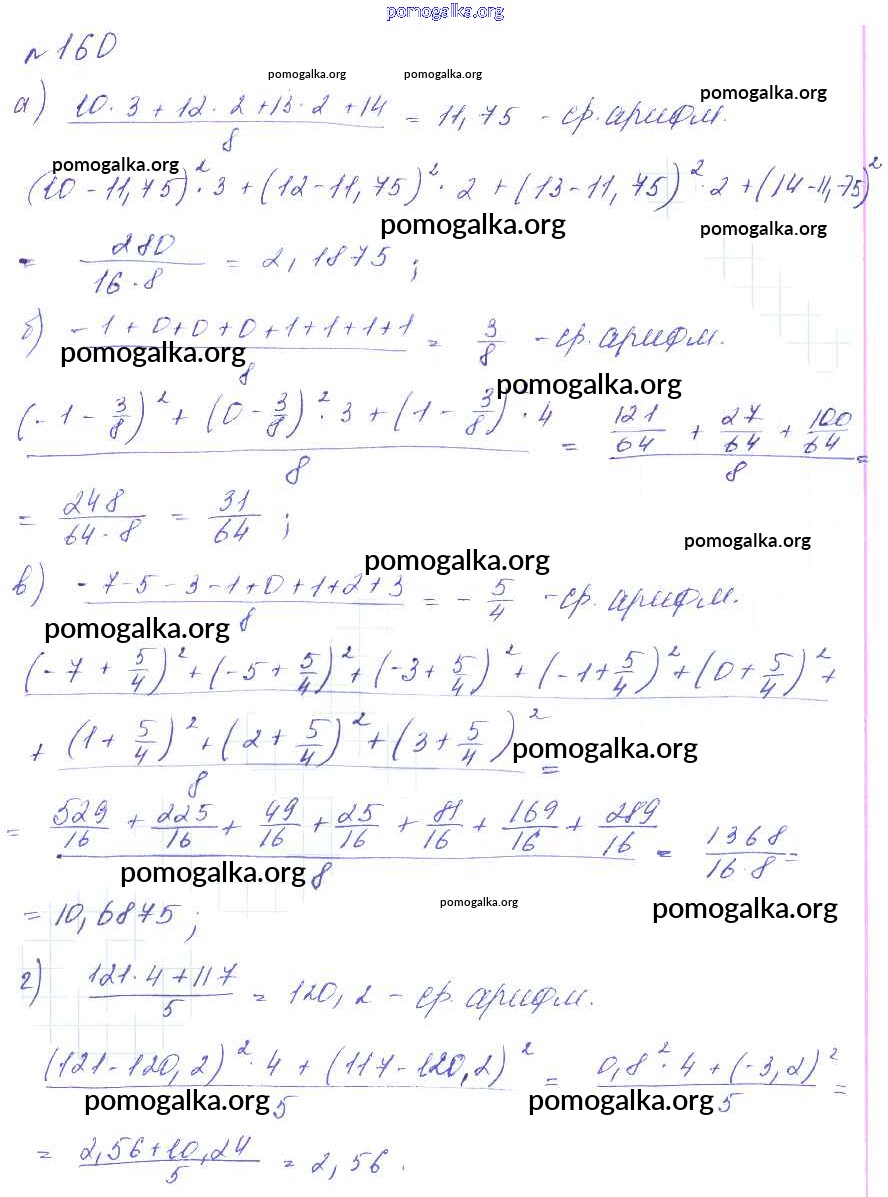 pomogalka.org
№160
pomogalka.org pomogalka.org pomogalka.org
а) (10·3+12·2+13·2+14)/8 = 11,75 - ср. арифм.
pomogalka.org
(10-11,75)²·3+(12-11,75)²·2+(13-11,75)²·2+(14-11,75)²
pomogalka.org pomogalka.org
= 280/(16·8) = 2,1875;
б) (-1+0+0+0+1+1+1+1)/8 = 3/8 - ср. арифм.
pomogalka.org pomogalka.org
((-1-3/8)²+(0-3/8)²·3+(1-3/8)²·4)/8 = (121/64+27/64+100/64)/8 =
= 248/(64·8) = 31/64;
pomogalka.org pomogalka.org
в) (-7-5-3-1+0+1+2+3)/8 = -5/4 - ср. арифм.
pomogalka.org
(-7+5/4)²+(-5+5/4)²+(-3+5/4)²+(-1+5/4)²+(0+5/4)²+
+(1+5/4)²+(2+5/4)²+(3+5/4)² =
8
pomogalka.org
= (529/16+225/16+49/16+25/16+81/16+169/16+289/16)/8 = 1368/(16·8) =
pomogalka.org pomogalka.org pomogalka.org
= 10,6875;
г) (121·4+117)/5 = 120,2 - ср. арифм.
((121-120,2)²·4+(117-120,2)²)/5 = (0,8²·4+(-3,2)²)/5 =
pomogalka.org pomogalka.org
= (2,56+10,24)/5 = 2,56.